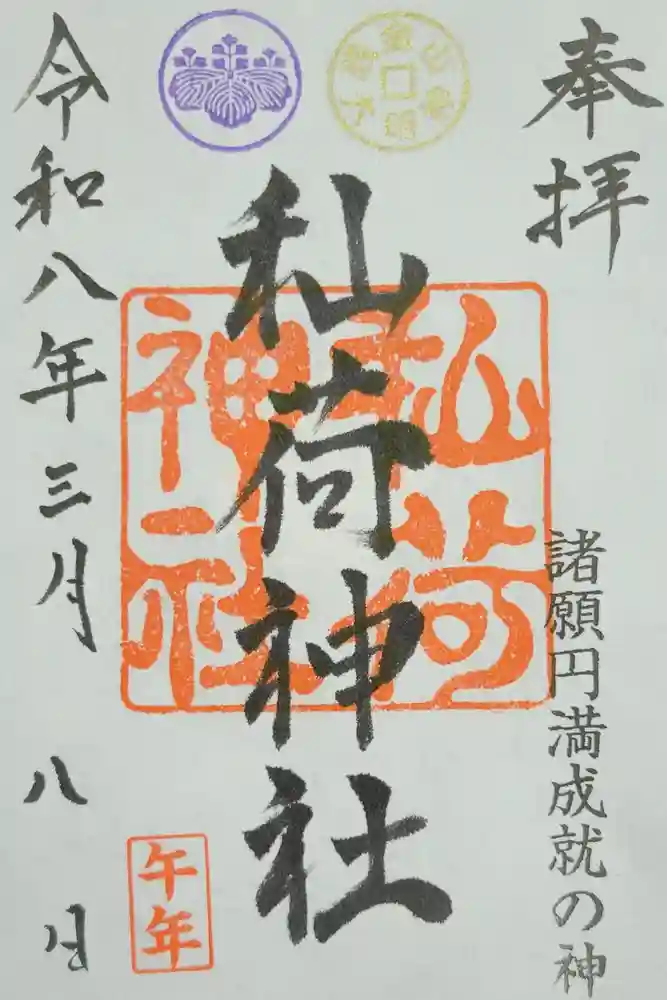 奉拝
諸願円満成就の神
秈荷神社
秈荷
神社
午年
令和八年三月八日